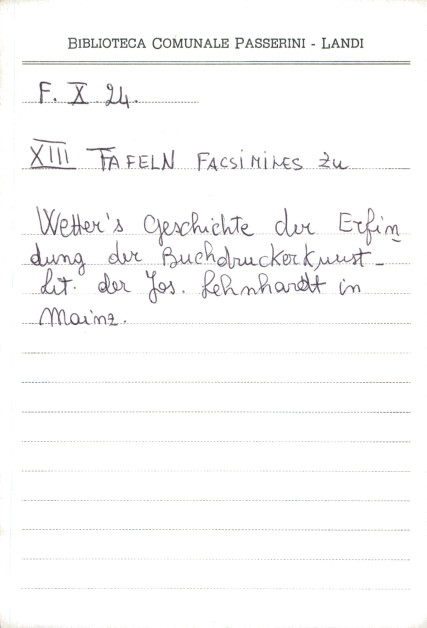 BIBLIOTECA COMUNALE PASSERINI - LANDI
F. X 24.
XIII TAFELN FACSIMILES zu
Wetter's Geschichte der Erfin
dung der Buchdruckerkunst_
Lit. der Jos. Lehnhardt in
Mainz.